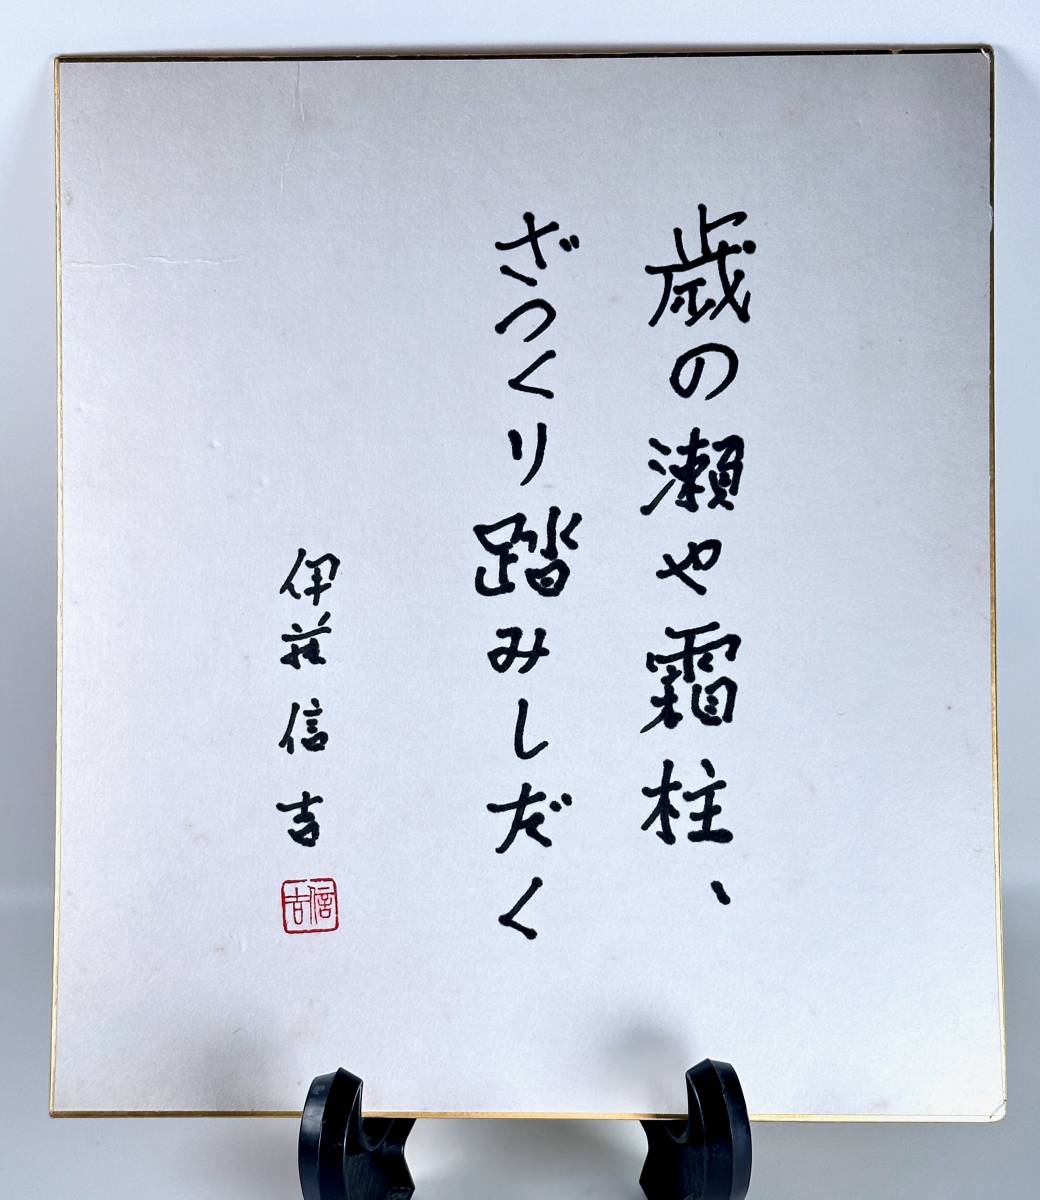 歳の瀬や霜柱、
ざつくり踏みしだく
伊藤信吉
信吉